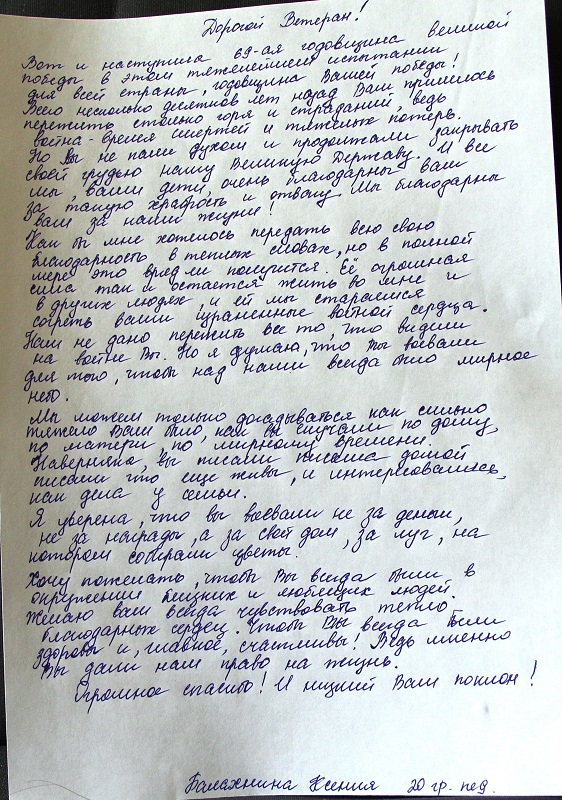 Дорогой Ветеран!
Вот и наступила 69-ая годовщина великой
победы в этом тяжелейшем испытании
для всей страны, годовщина Вашей победы!
Всего несколько десятков лет назад Вам пришлось
пережить столько горя и страданий, ведь
война - время смертей и тяжелых потерь.
Но Вы не пали духом и продолжали закрывать
своей грудью нашу Великую Державу. И все
мы, ваши дети, очень благодарны вам
за такую храбрость и отвагу. Мы благодарны
вам за наши жизни!
Как бы мне хотелось передать всю свою
благодарность в теплых словах, но в полной
мере это вряд ли получится. Её огромная
сила так и остается жить во мне и
в других людях, и ей мы стараемся
согреть ваши израненные войной сердца.
Нам не дано пережить все то, что видели
на войне Вы. Но я думаю, что Вы воевали
для того, чтобы над нами всегда было мирное
небо.
Мы можем только догадываться как сильно
тяжело Вам было, как вы скучали по дому,
по матери, по мирному времени.
Наверняка, вы писали письма домой
писали что еще живы, и интересовались,
как дела у семьи.
Я уверена, что вы воевали не за деньги,
не за награды, а за свой дом, за луг, на
котором собирали цветы.
Хочу пожелать, чтобы Вы всегда были в
окружении близких и любящих людей.
Желаю вам всегда чувствовать тепло
благодарных сердец. Чтобы Вы всегда были
здоровы и, главное, счастливы! Ведь именно
Вы дали нам право на жизнь.
Огромное спасибо! И низкий Вам поклон!
Балахнина Ксения 20 гр. пед.